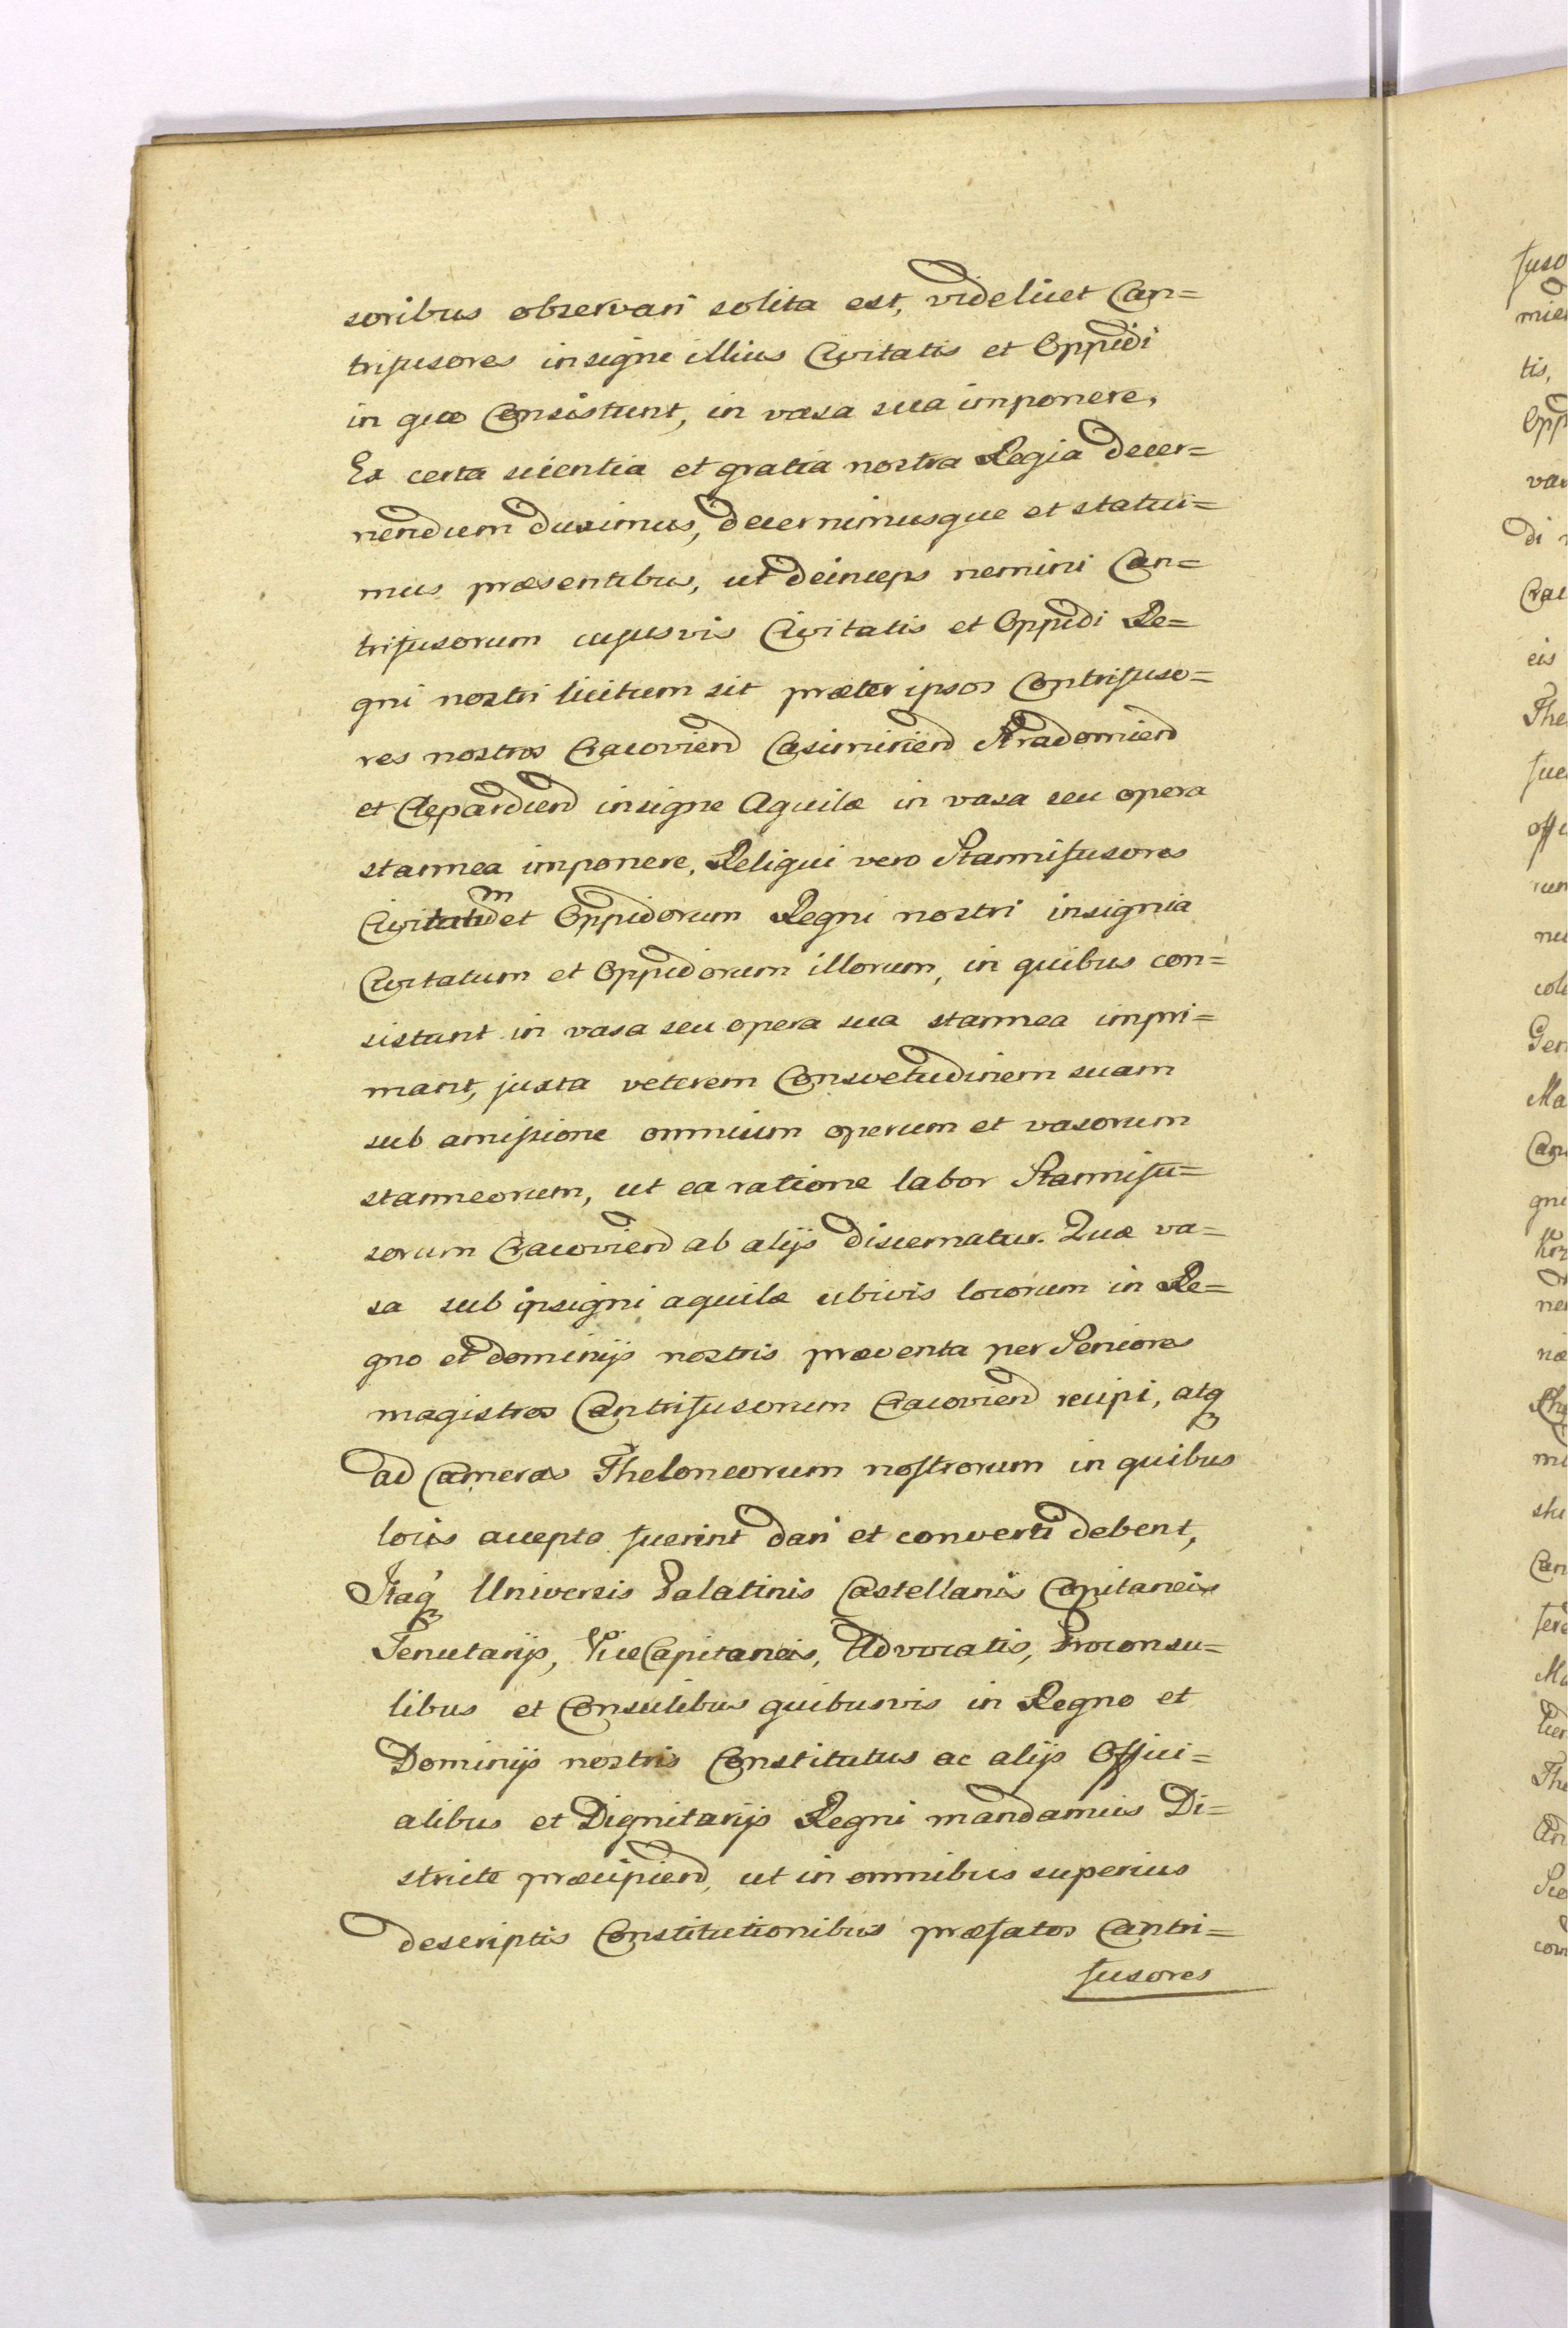 soribus observari solita est, videlicet Can=
trifusores insigne illius Civitatis et Oppidi
in quo Consistunt, in vasa sua imponere,
Ex certa scientia et gratia nostra Regia decer=
nendum duximus, decernimusque et statui=
mus præsentibus, ut deinceps nemini Can=
trifusorum cujusvis Civitatis et Oppidi Re=
gni nostri licitum sit præter ipsos Contrifuso=
res nostros Cracoviend Casimiriend Stradomiend
et Clepardiend insigne Aquilæ in vasa seu opera
stannea imponere, Reliqui vero Stannifusores
Civitatum et Oppidorum Regni nostri insignia
Civitatum et Oppidorum illorum, in quibus con=
sistunt in vasa seu opera sua stannea impri=
mant, juxta veterem Consvetudinem suam
sub amissione omnium operum et vasorum
stanneorum, ut ea ratione labor Stannifu=
sorum Cracoviend ab alijs discernatur. Quæ va=
sa sub insigni aquilæ ubivis locorum in Re=
gno et dominijs nostris præventa per Seniores
magistros Cantrifusorum Cracoviend recipi, atq
ad Cameras Theloneorum nostrorum in quibus
locis accepta fuerint dari et converti debent,
Itaq Universis Palatinis Castellanis Capitaneis
Tenutarijs, ViceCapitaneis, Advocatis, Proconsu=
libus et Consulibus quibusvis in Regno et
Dominijs nostris Constitutus ac alijs Offici=
alibus et Dignitarijs Regni mandamus Di=
stricte præcipiend, ut in omnibus superius
descriptis Constitutionibus præfatos Cantri=
fusores